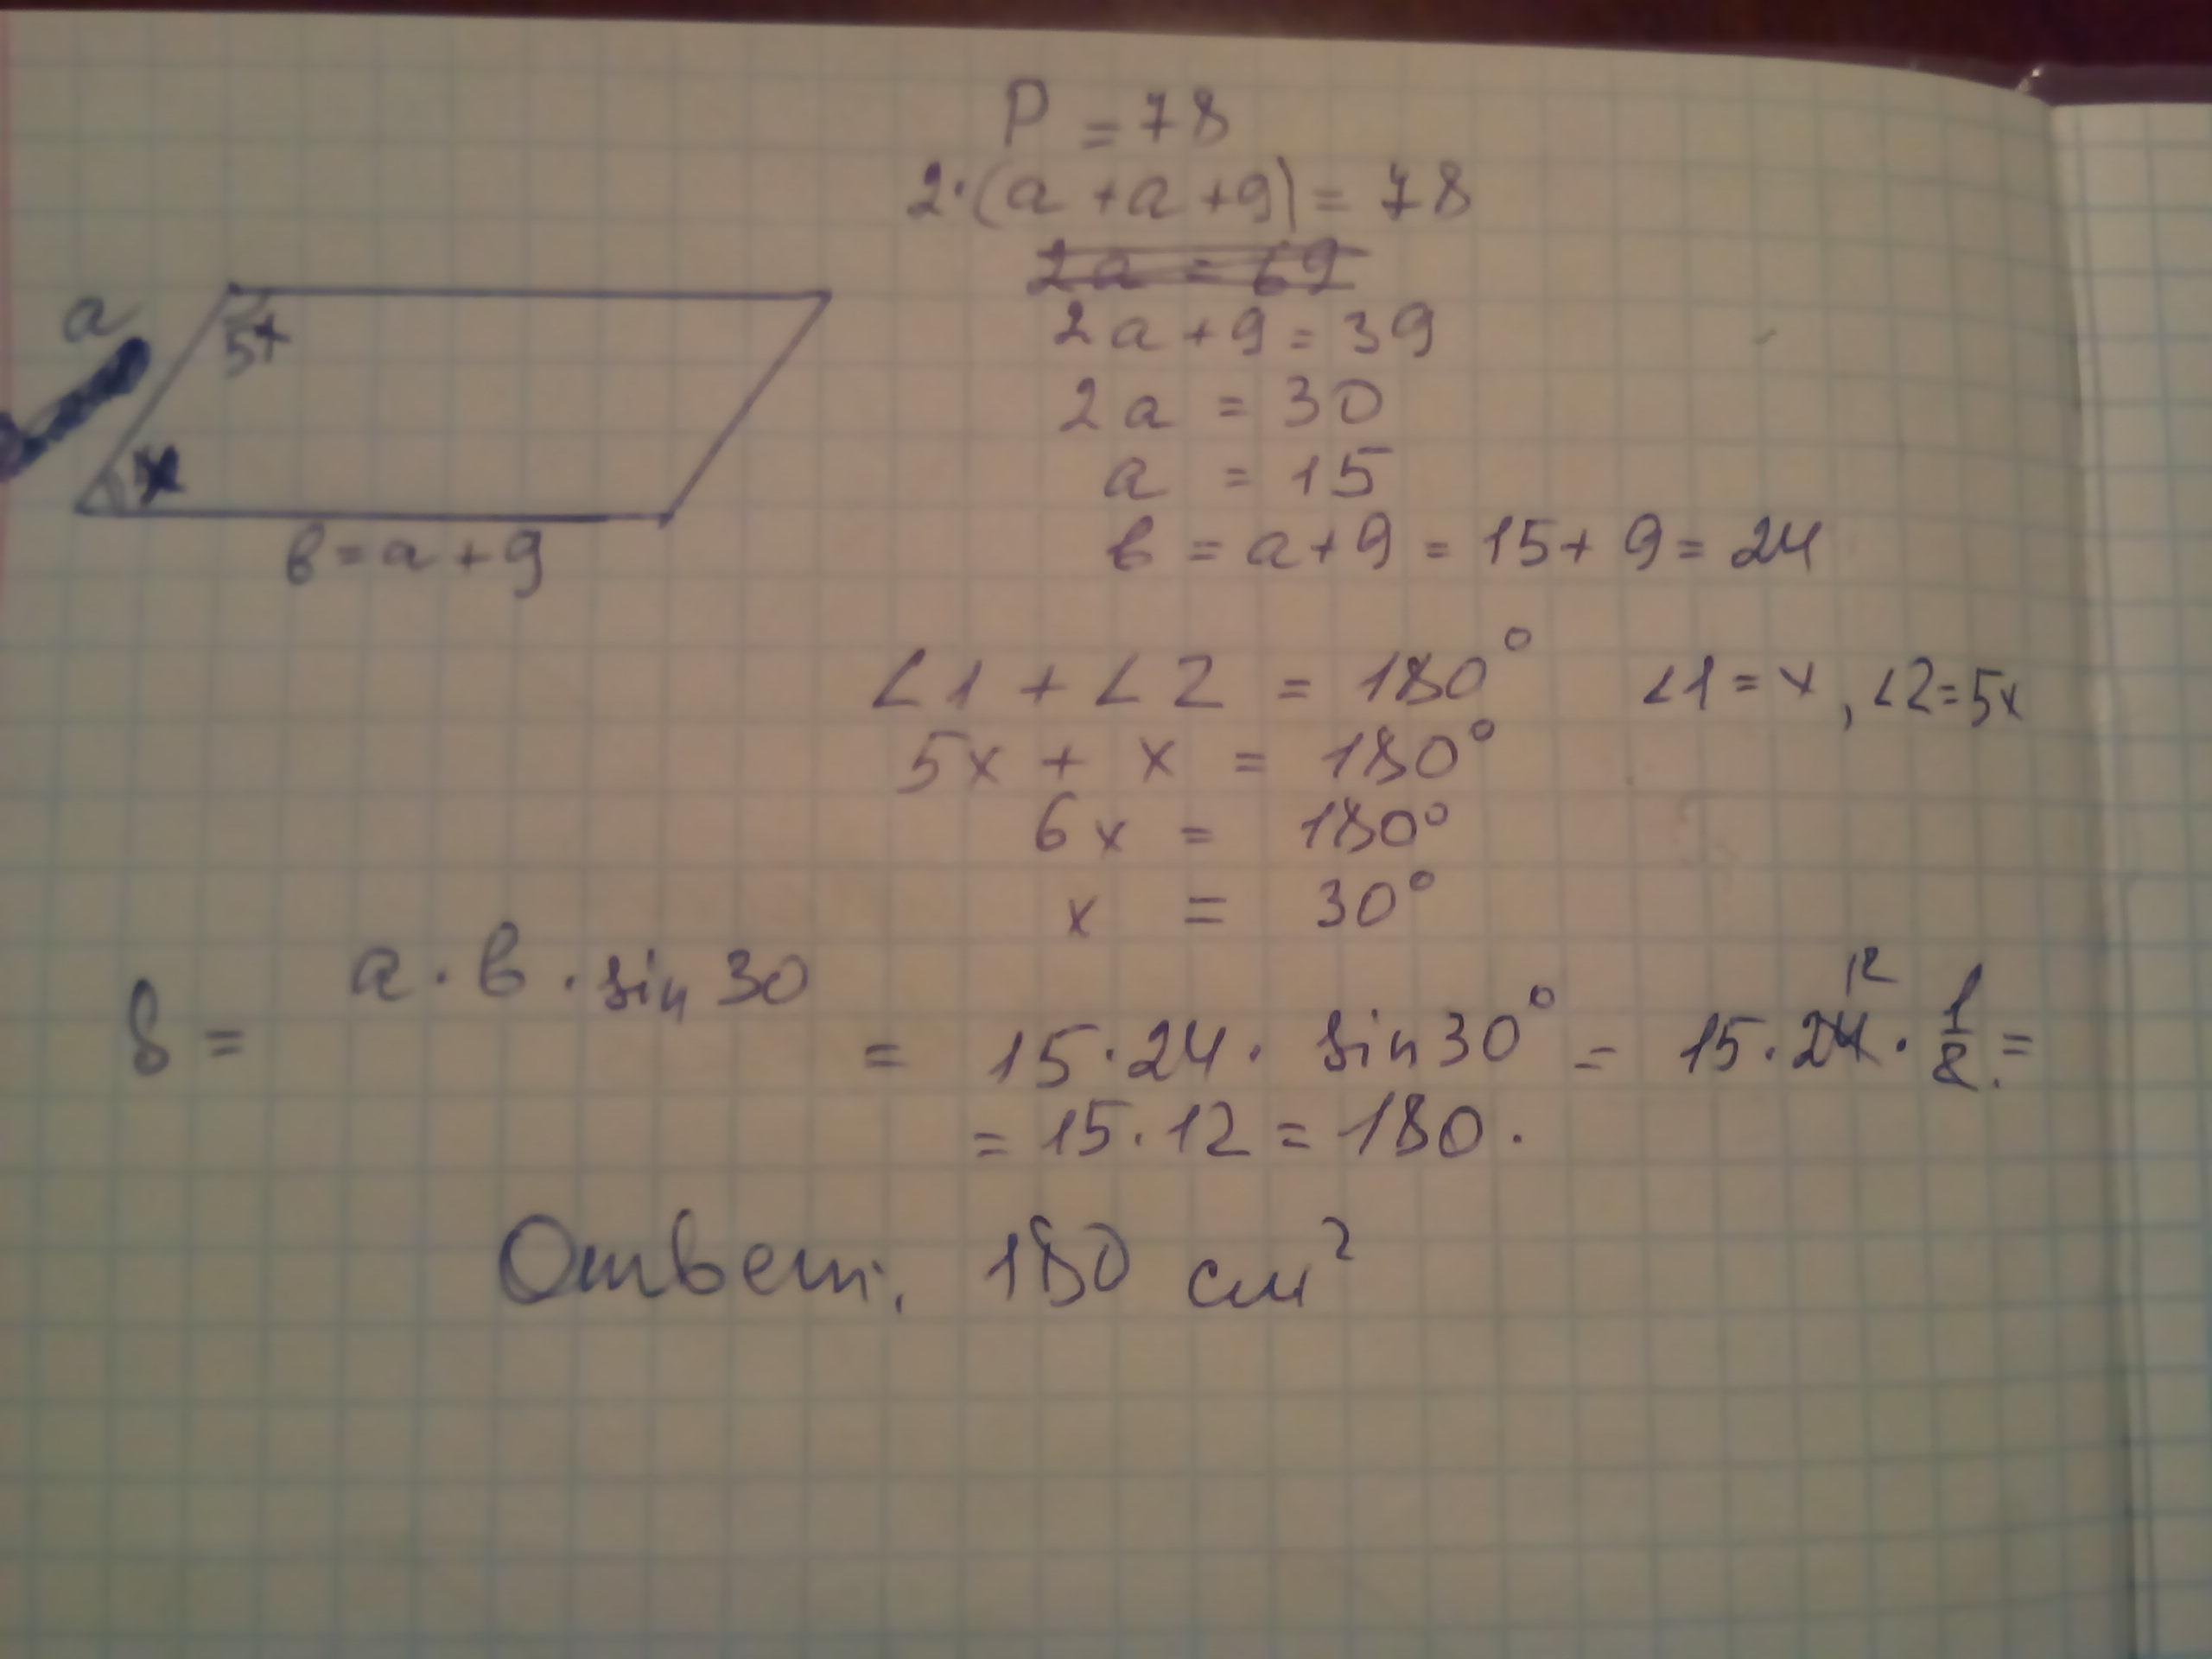 P = 78
2·(a + a + 9) = 78
2a = 69
2a + 9 = 39
2a = 30
a = 15
в = a + 9 = 15 + 9 = 24
a
5x
x
в = a + 9
∠1 + ∠2 = 180° ∠1 = x, ∠2 = 5x
5x + x = 180°
6x = 180°
x = 30°
S = a · в · sin 30 = 15 · 24 · sin 30° = 15 · 24 12 · 1/2 =
= 15 · 12 = 180.
Ответ: 180 см²